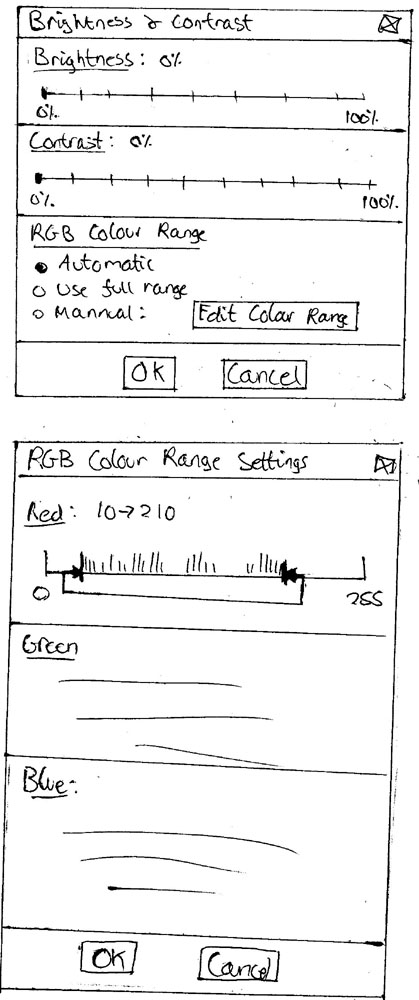 Brightness & Contrast
Brightness: 0%
0% 100%
Contrast: 0%
0% 100%
RGB Colour Range
Automatic
Use full range
Mannual:
Edit Colour Range
OK Cancel
RGB Colour Range Settings
Red: 10→210
0 255
Green
Blue:
OK Cancel